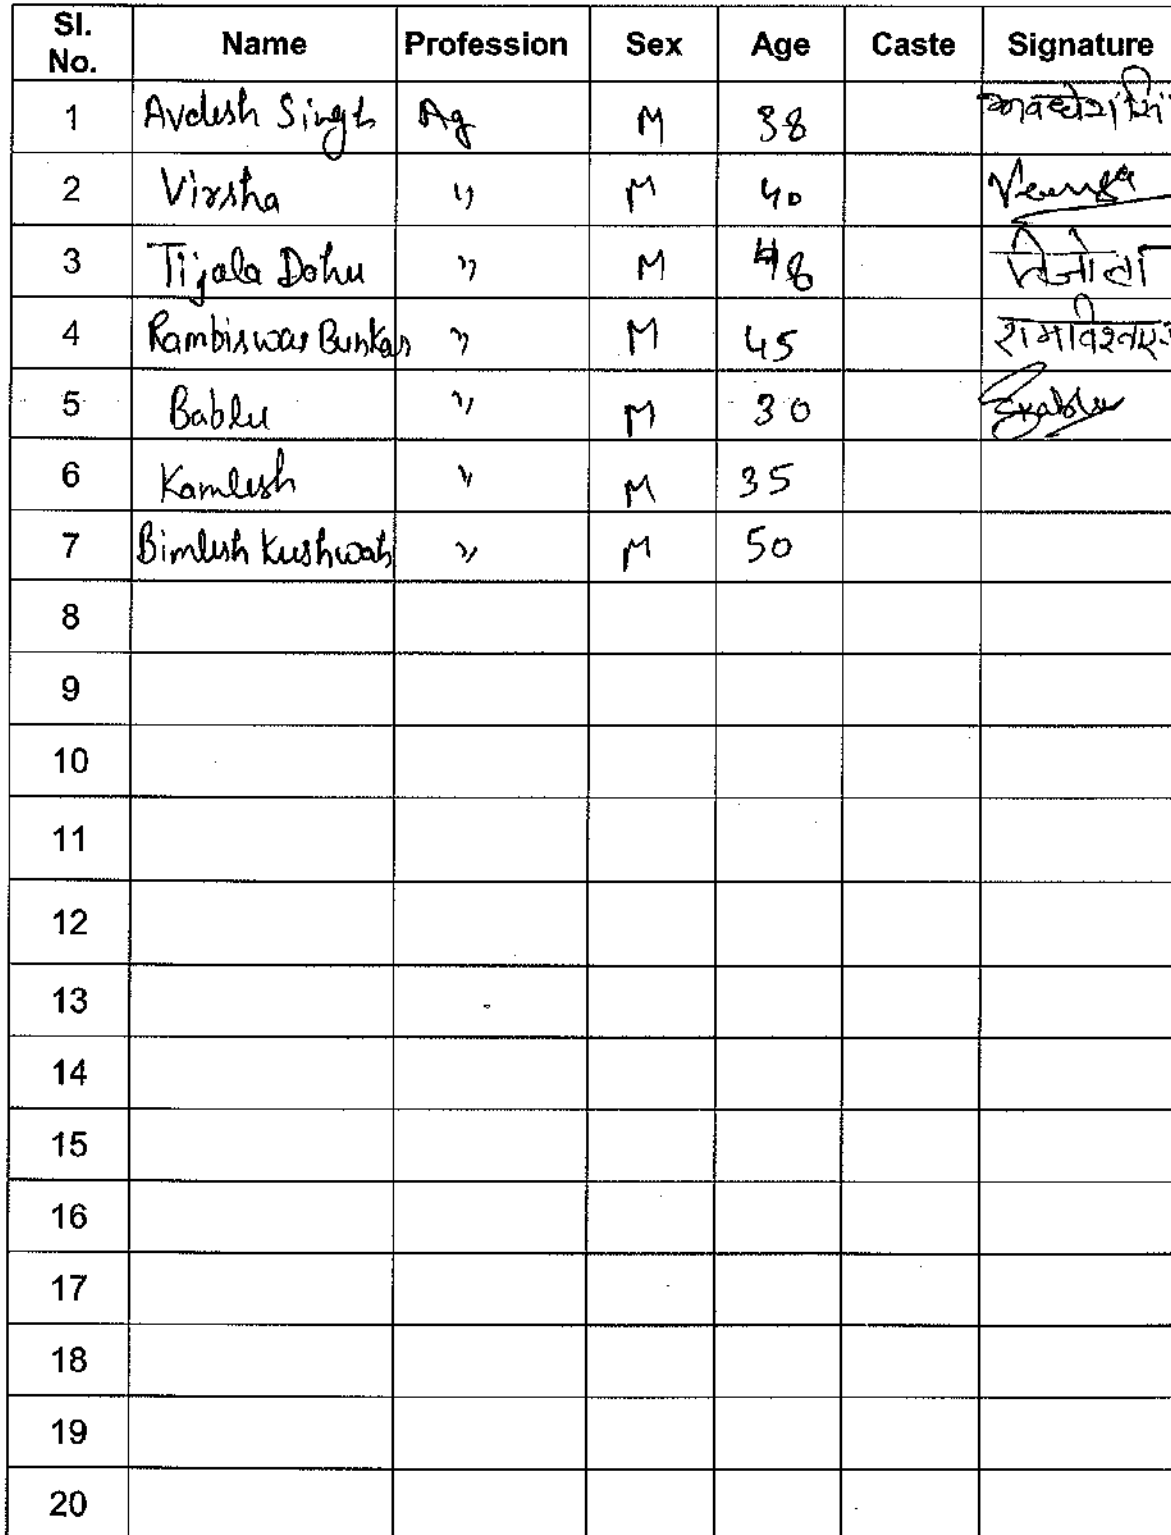 Sl. No. Name Profession Sex Age Caste Signature
1 Avdesh Singh Ag M 38
2 Virsha " M 40
3 Tijala Dohu " M 48
4 Rambiswas Bunkar " M 45
5 Bablu " M 30 Bablu
6 Kamlesh " M 35
7 Bimlesh Kushwah " M 50
8
9
10
11
12
13
14
15
16
17
18
19
20